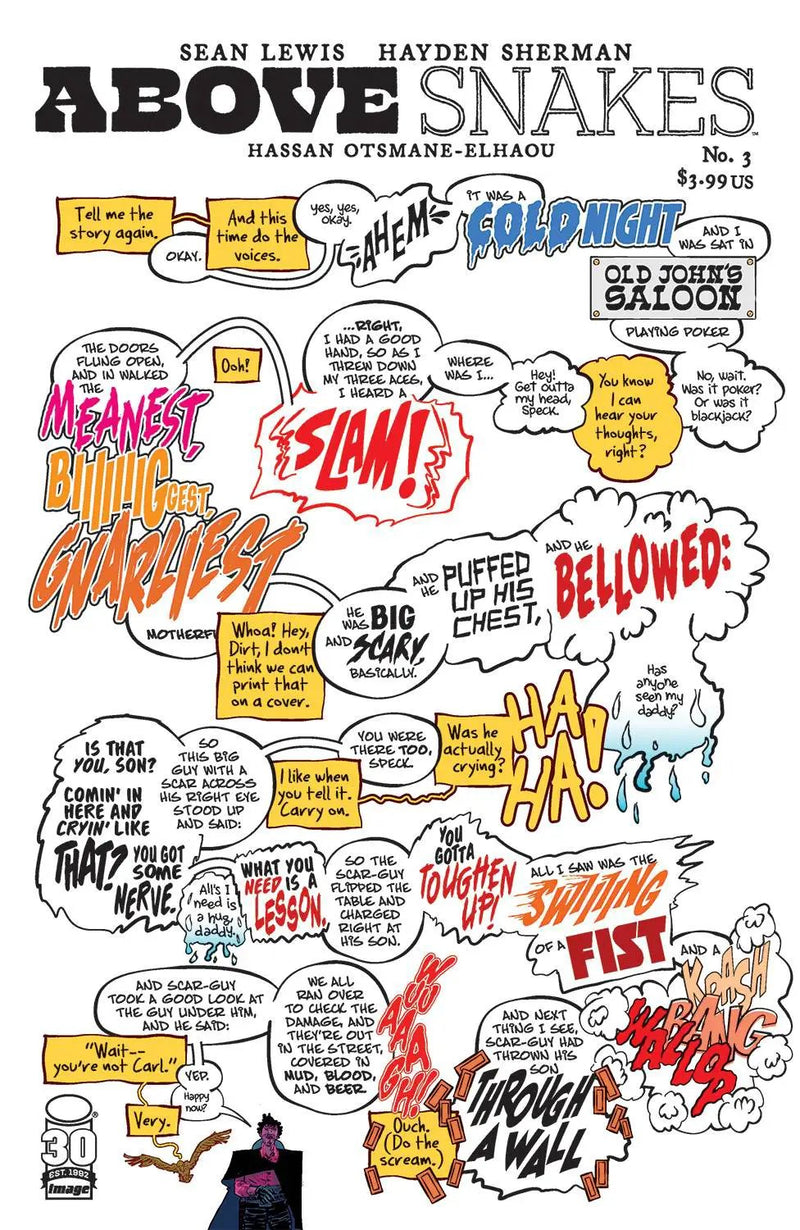 SEAN LEWIS HAYDEN SHERMAN
ABOVE SNAKES
HASSAN OTSMANE-ELHAOU
No. 3
$3.99 US
Tell me the
story again.
OKAY.
And this
time do the
voices.
yes, yes,
okay.
AHEM
IT WAS A
COLD NIGHT
AND I
WAS SAT IN
OLD JOHN'S
SALOON
PLAYING POKER
No, wait.
Was it poker?
Or was it
blackjack?
You know
I can
hear your
thoughts,
right?
Hey!
Get outta
my head,
Speck.
WHERE
WAS I...
...RIGHT,
I HAD A GOOD
HAND, SO AS I
THREW DOWN
MY THREE ACES,
I HEARD A
SLAM!
Ooh!
THE DOORS
FLUNG OPEN,
AND IN WALKED
THE
MEANEST,
BIIIIIIIGGEST,
GNARLIEST
MOTHERFU
Whoa! Hey,
Dirt, I don't
think we can
print that
on a cover.
HE
WAS BIG
AND SCARY,
BASICALLY.
AND
HE PUFFED
UP HIS
CHEST,
AND HE
BELLOWED:
Has
anyone
seen my
daddy?
HA
HA!
Was he
actually
crying?
YOU WERE
THERE TOO,
SPECK.
I like when
you tell it.
Carry on.
SO
THIS BIG
GUY WITH A
SCAR ACROSS
HIS RIGHT EYE
STOOD UP
AND SAID:
IS THAT
YOU, SON?
COMIN' IN
HERE AND
CRYIN' LIKE
THAT? YOU GOT
SOME
NERVE.
All's I
need is
a hug,
daddy.
WHAT YOU
NEED IS A
LESSON.
SO THE
SCAR-GUY
FLIPPED THE
TABLE AND
CHARGED
RIGHT AT
HIS SON.
YOU
GOTTA
TOUGHEN
UP!
ALL I SAW WAS THE
SWIIIING
OF A FIST
AND A
KRASH
BANG
WALLOP
AND NEXT
THING I SEE,
SCAR-GUY HAD
THROWN HIS
SON
THROUGH
A WALL
Ouch.
(Do the
scream.)
WUUAAAAGH!
WE ALL
RAN OVER
TO CHECK THE
DAMAGE, AND
THEY'RE OUT
IN THE STREET,
COVERED IN
MUD, BLOOD,
AND BEER.
AND SCAR-GUY
TOOK A GOOD LOOK AT
THE GUY UNDER HIM,
AND HE SAID:
"Wait--
you're not Carl."
YEP.
Happy
now?
Very.
30
EST. 1992
image